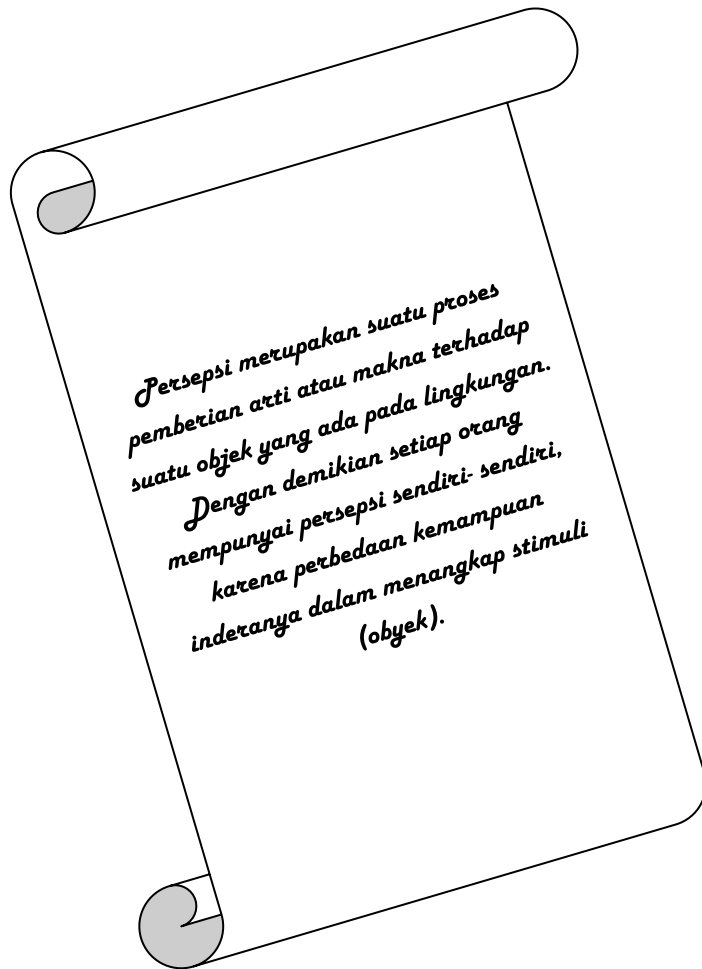 Persepsi merupakan suatu proses
pemberian arti atau makna terhadap
suatu objek yang ada pada lingkungan.
Dengan demikian setiap orang
mempunyai persepsi sendiri- sendiri,
karena perbedaan kemampuan
inderanya dalam menangkap stimuli
(obyek).